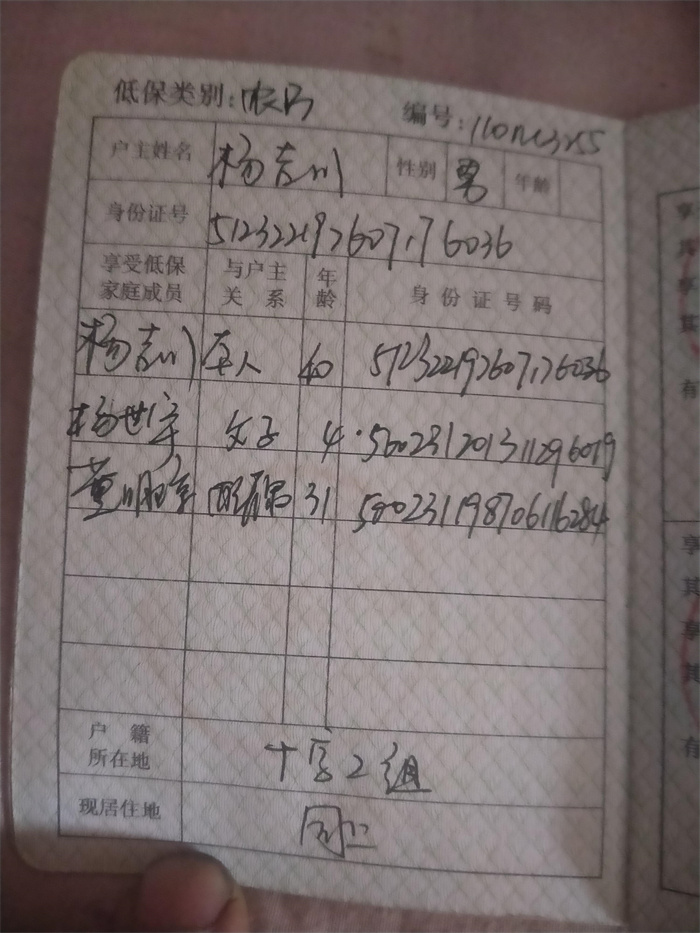 低保类别: 农户 编号:
户主姓名 杨志川 性别 男 年龄
身份证号 512322197607176036
享受低保家庭成员 与户主关系 年龄 身份证号码
杨志川 本人 40 512322197607176036
杨世宇 父子 4 500231201311296019
董 配偶 31 500231198706116284
户籍所在地 十字2组
现居住地 同上
享
其
享
其
有
享
其
享
其
有